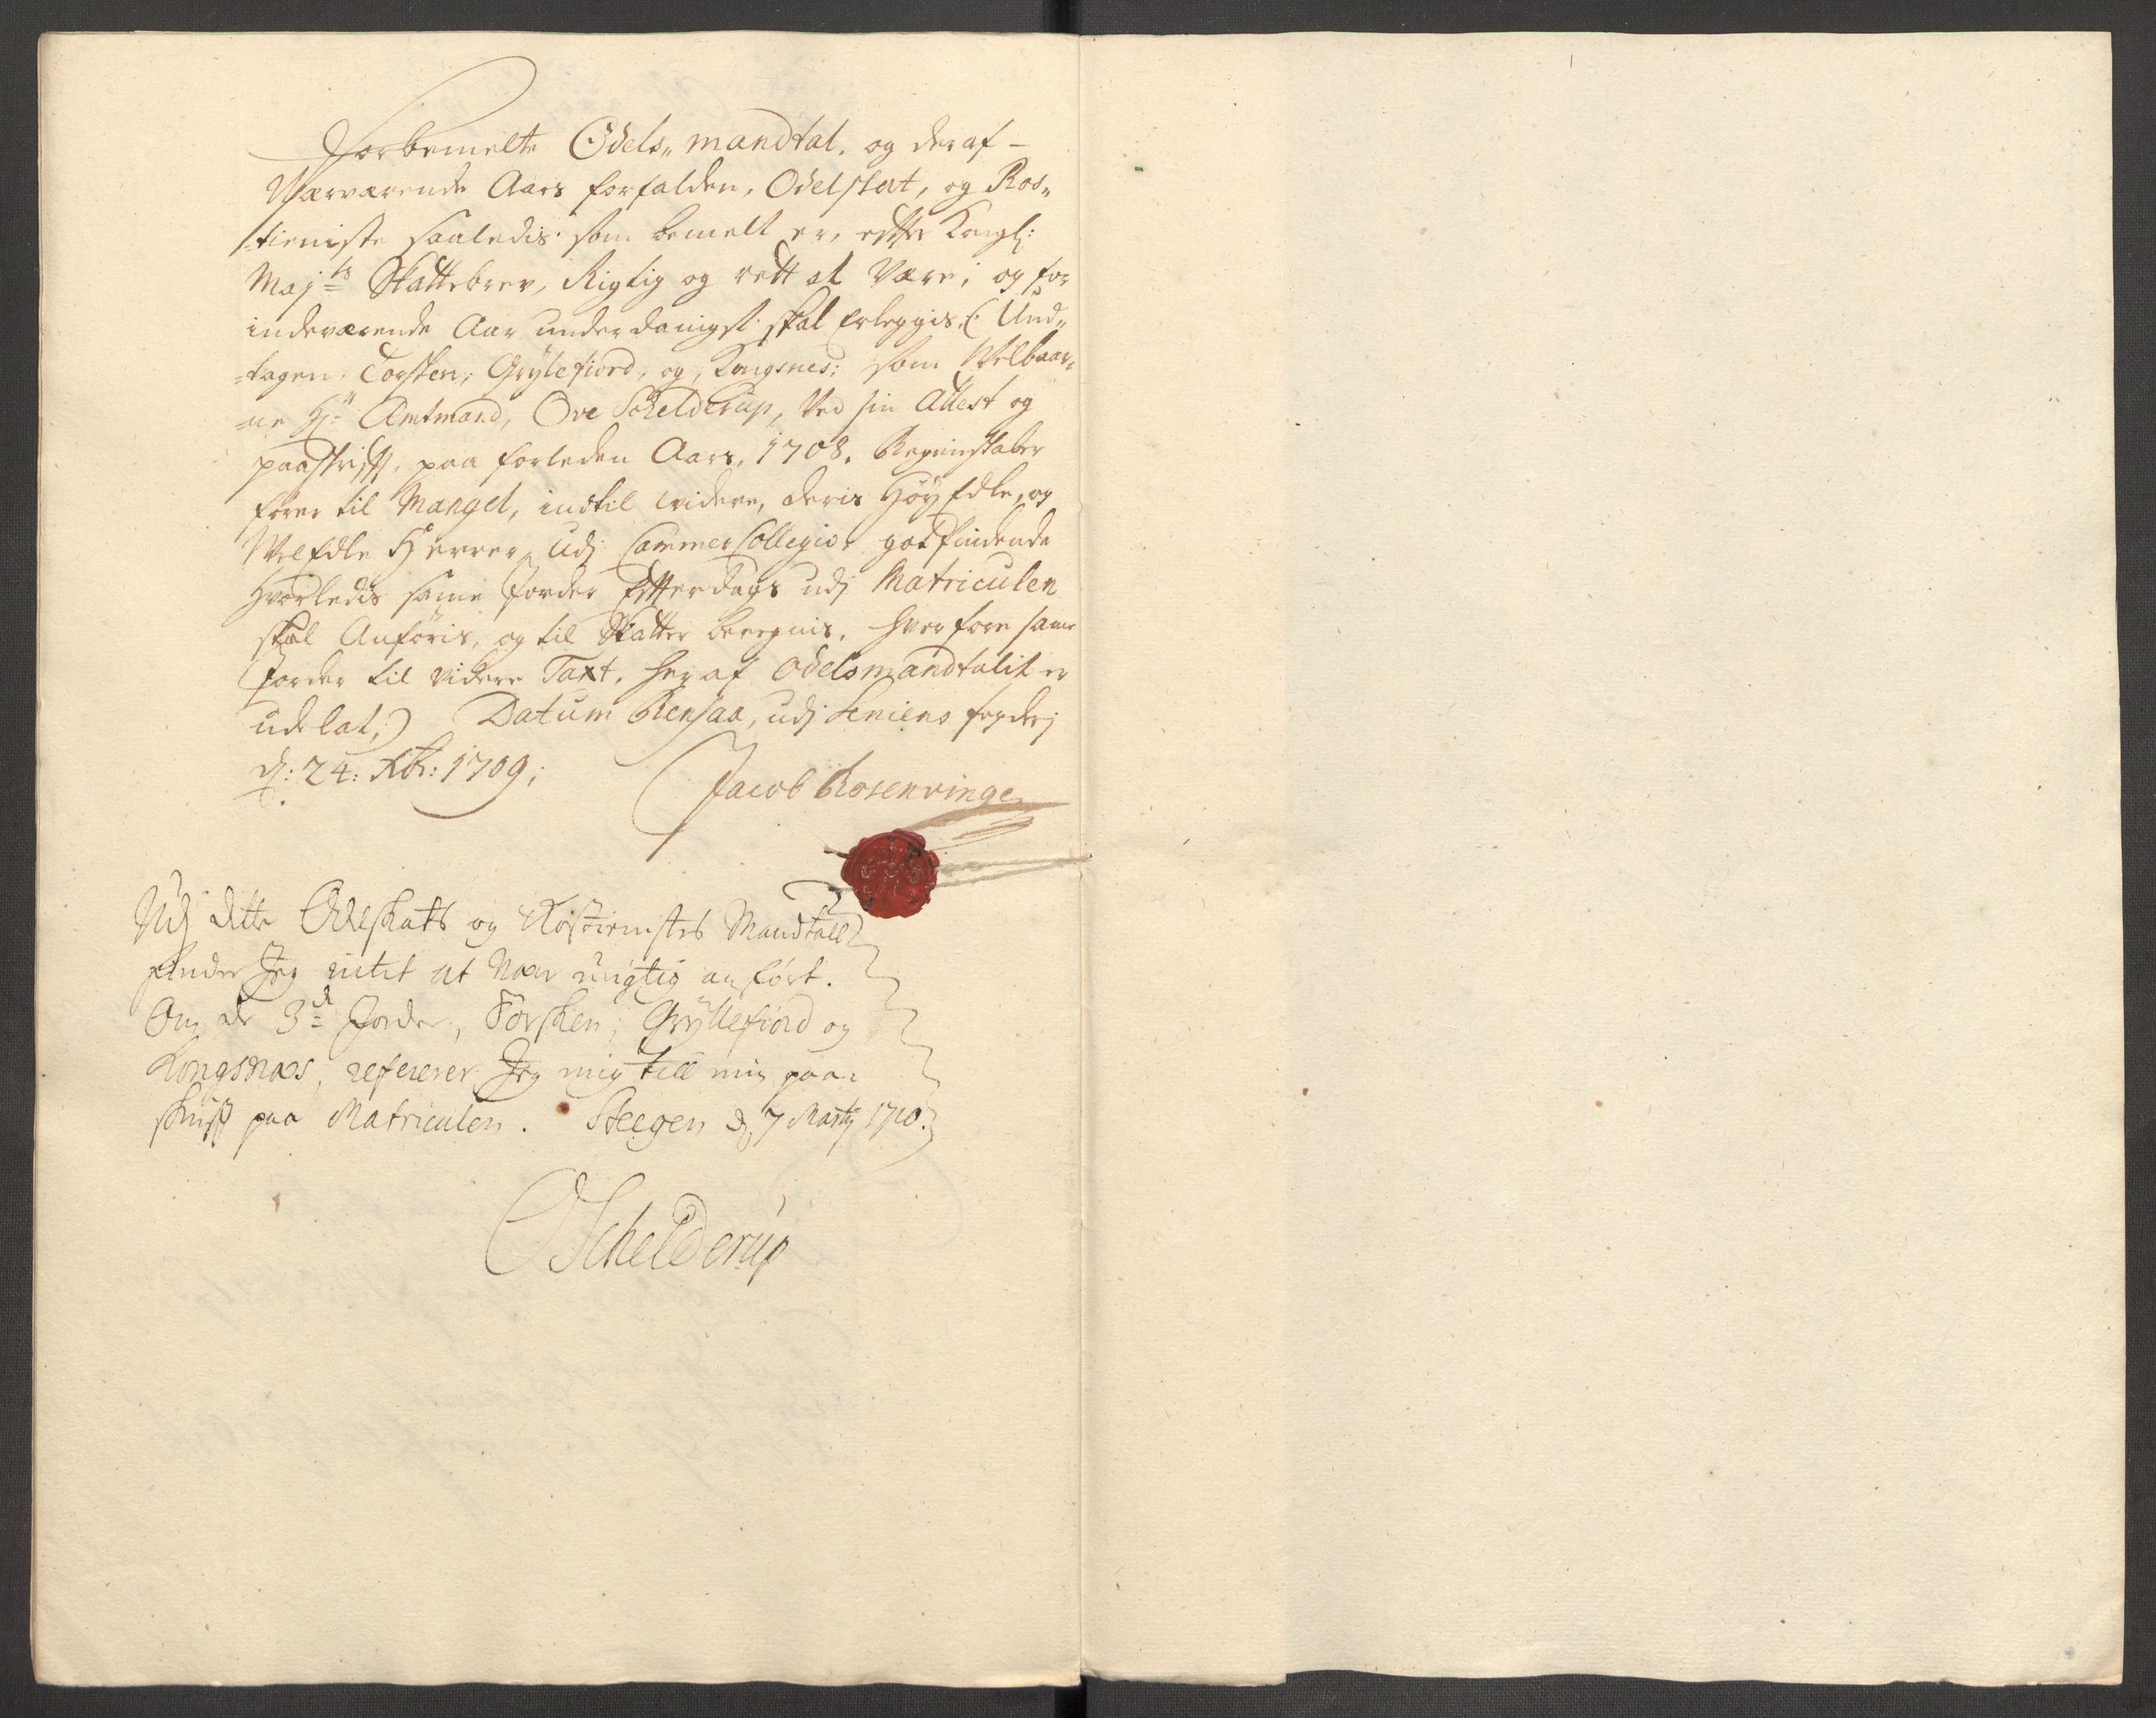 Forbemelte Odels„ mandtal, og deraf –
Nærværende Aars forfalden, Odelskat, og Ros„
tieniste saaledis som bemelt er, effter Kongl:
Maj=ts Skattebrev, Rigtig og rett at være; og for
indeværende Aar underdanigst skal Erleggis, (: Und„
=tagen, Torsken, Gryllefiord, og, Kongsnes: som Welbaar„
ne Hr Amtmand, Ove Schelderup, Ved sin Attest og
paaskrifft, paa forleden Aars, 1708. Regenskaber
fører til Mangel, indtil widere, deris Høy Edle, og
Wel Edle Herrer, udj Cammer Collegio godfindende
Hvorledis samme Jorder Effterdags udj Matriculen
skal Anføris, og til Skatter beregnis, hvor fore samme
Jorder til videre Taxt, her af Odelsmandtalit er
udelat;) Datum Rensaa, udj Seniens fogderj
d: 24: Xbr: 1709;
Jacob Rosenvinge
Udj dette Odelskats og Rostienistes Mandtall
finder Jeg intet at være urigtig anført.
Om de 3de Jorder, Torsken, Gryllefiord og
Kongsnæs, refererer Jeg mig till min paa=
skrifft paa Matriculen. Steegen d 7 Martj 1710.
OSchelderup